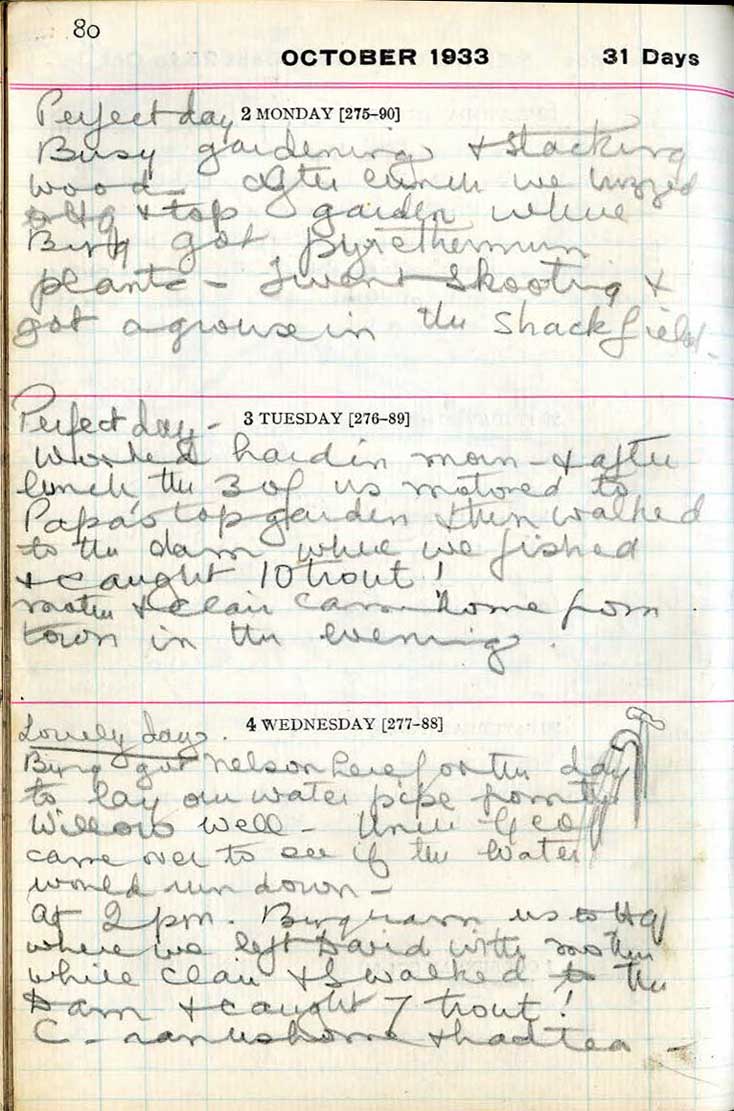 80
OCTOBER 1933 31 Days
Perfect day 2 MONDAY [275-90]
Busy gardening & stacking
wood - After lunch we buzzed
to Hq & top garden where
got pyrethermum
plants - I went shooting &
got a grouse in the Shack field.
Perfect day - 3 TUESDAY [276-89]
Worked hard in morn - & after
lunch, the 3 of us motored to
Papa's top garden & then walked
to the dam where we fished
& caught 10 trout!
mother & Clair came home from
town in the evening.
Lovely day. 4 WEDNESDAY [277-88]
got Nelson here for the day
to lay our water pipe from the
Willow well - Uncle Geo
came over to see if the water
would run down -
At 2 pm. ran us to Hq
where we left David with mother
while Clair & I walked to the
Dam & caught 7 trout!
C - ran us home & had tea -